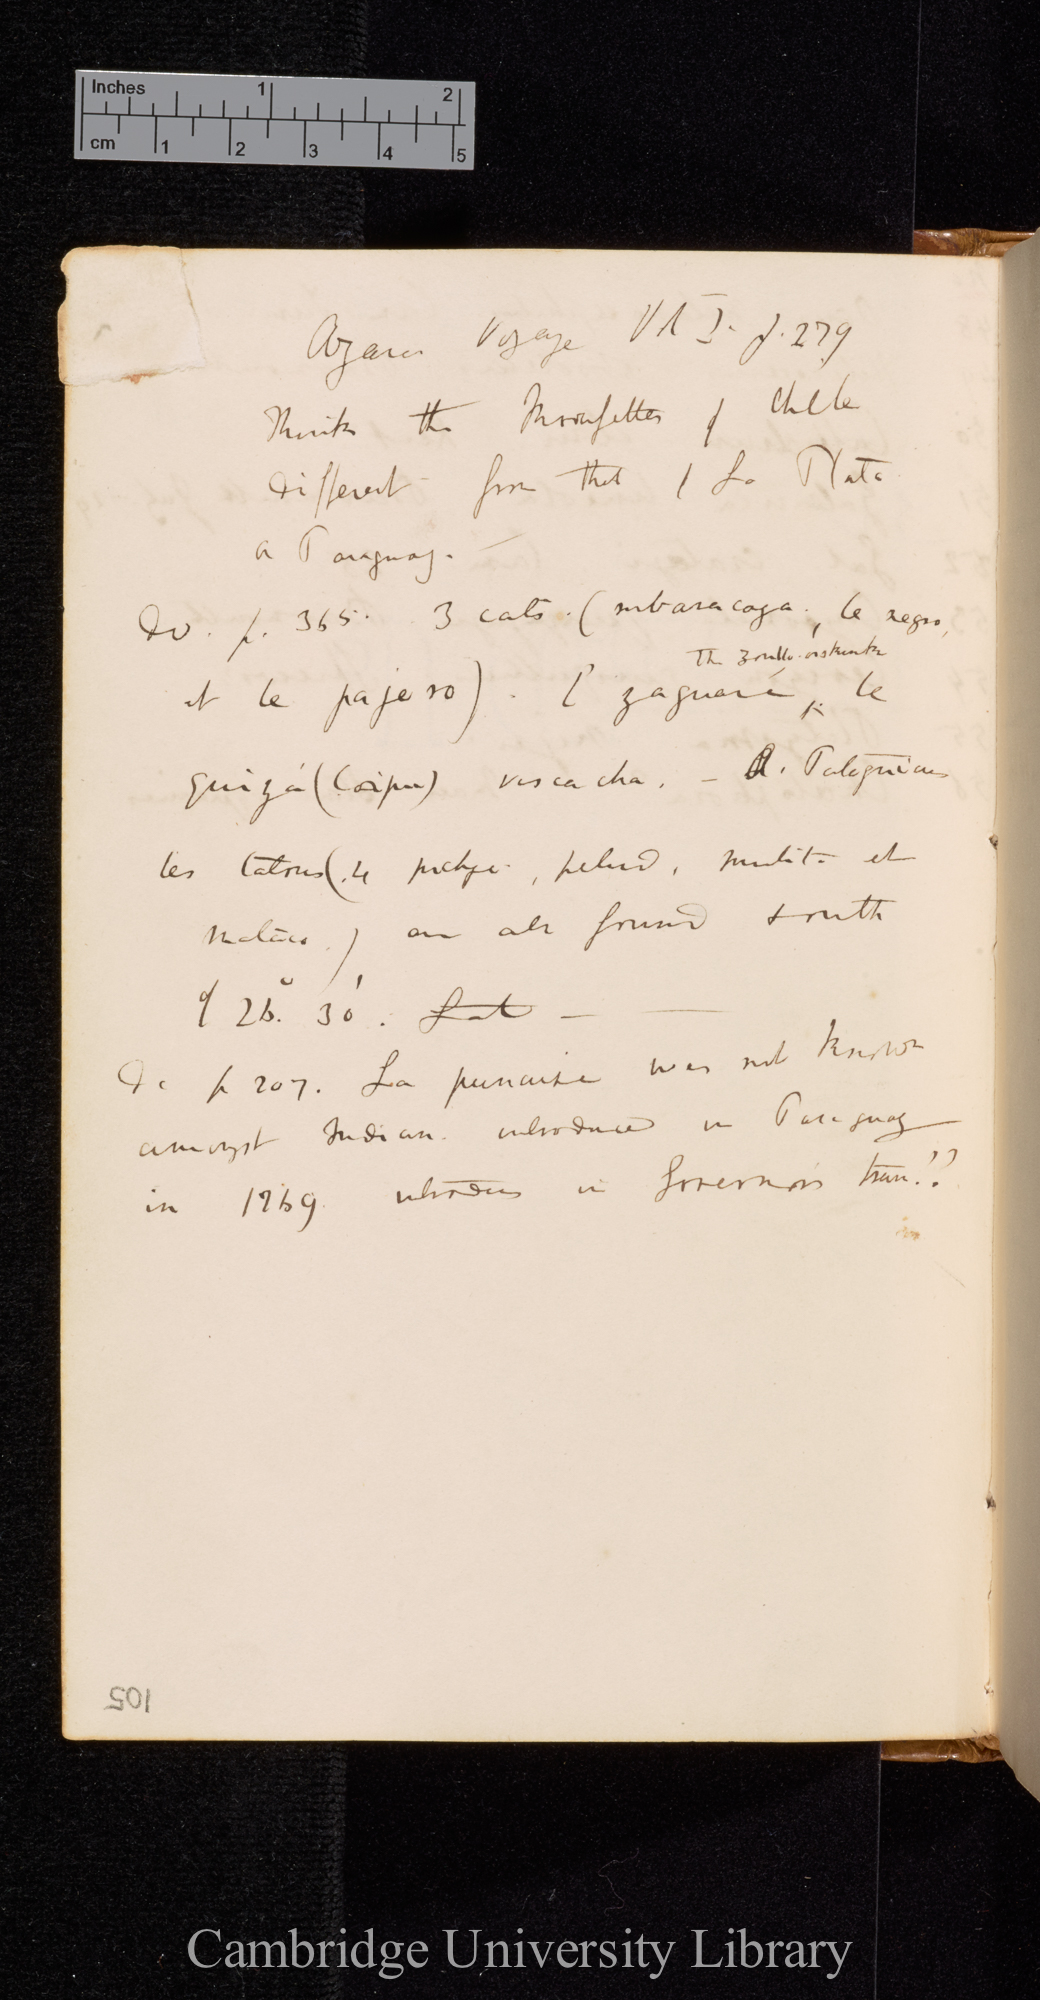 Inches 1 2
cm 1 2 3 4 5
Azara Voyage Vol I. p. 279
Thinks the Moufettes of Chile
different from that of La Plata
& Paraguay. —
Do. p. 365. 3 cats. (mbaracaya, le negro,
et le pajero). l'
The Zorillo
le
quiya (Coipu) viscacha. — D. Patagonicus
les tatous (le pichy, pelud, mulita et
mataco.) are all found south
of 26°. 30'. Lat —
Do p 207. La punaise was not known
amongst Indian. introduced in Paraguay
in 1769 in Governors
105
Cambridge University Library